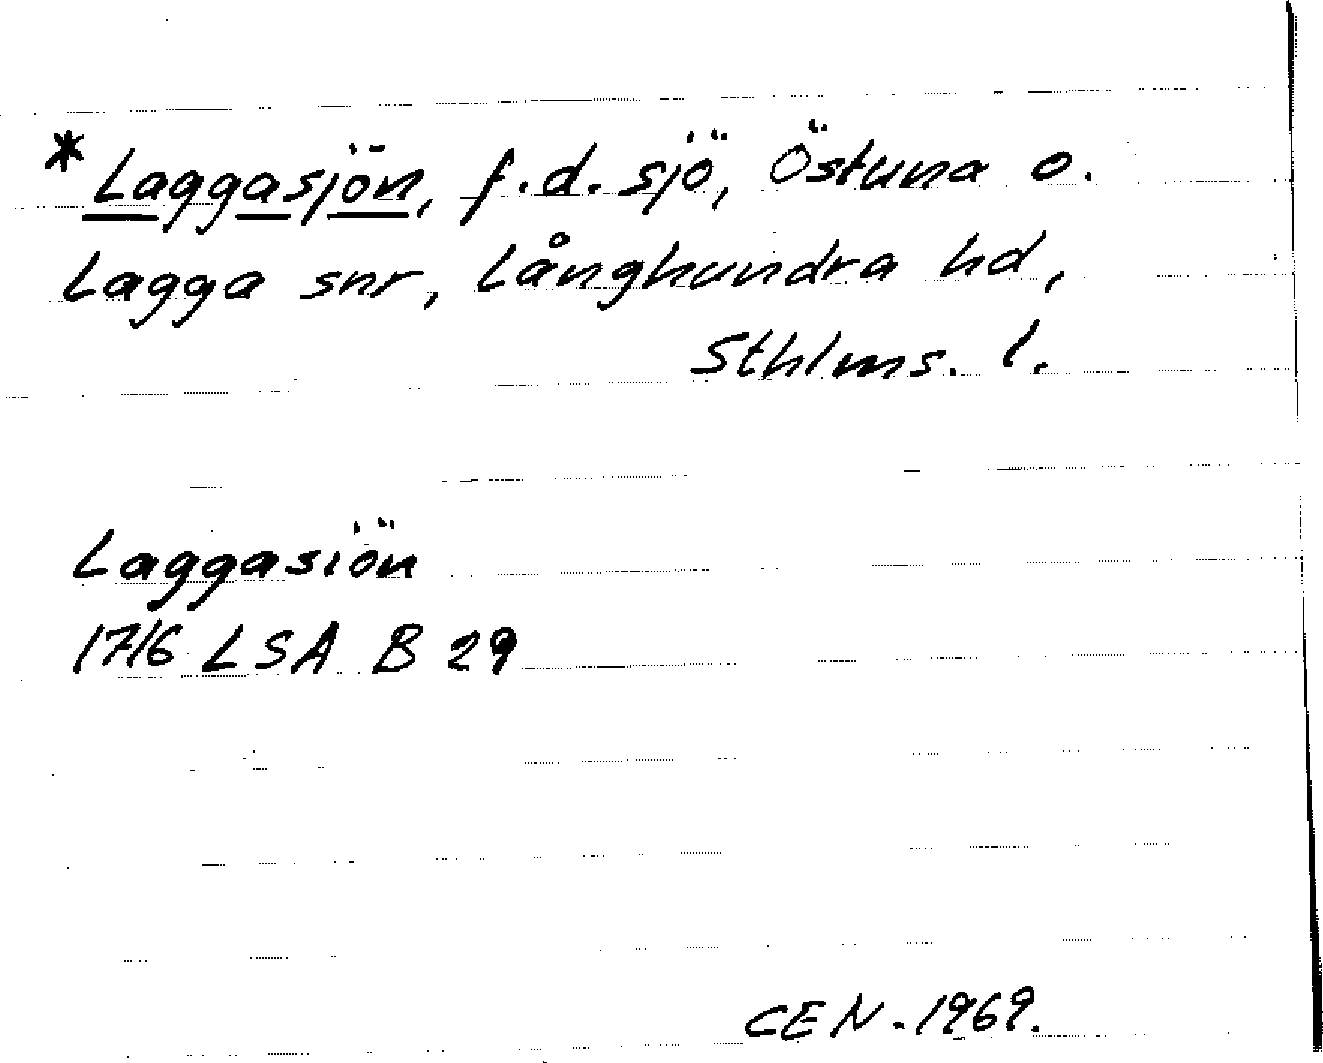 *Laggasjön, f.d. sjö, Östuna o.
Lagga snr, Långhundra hd,
Sthlms. l.
Laggasiön
1716 LSA B 29
CEN. 1969.